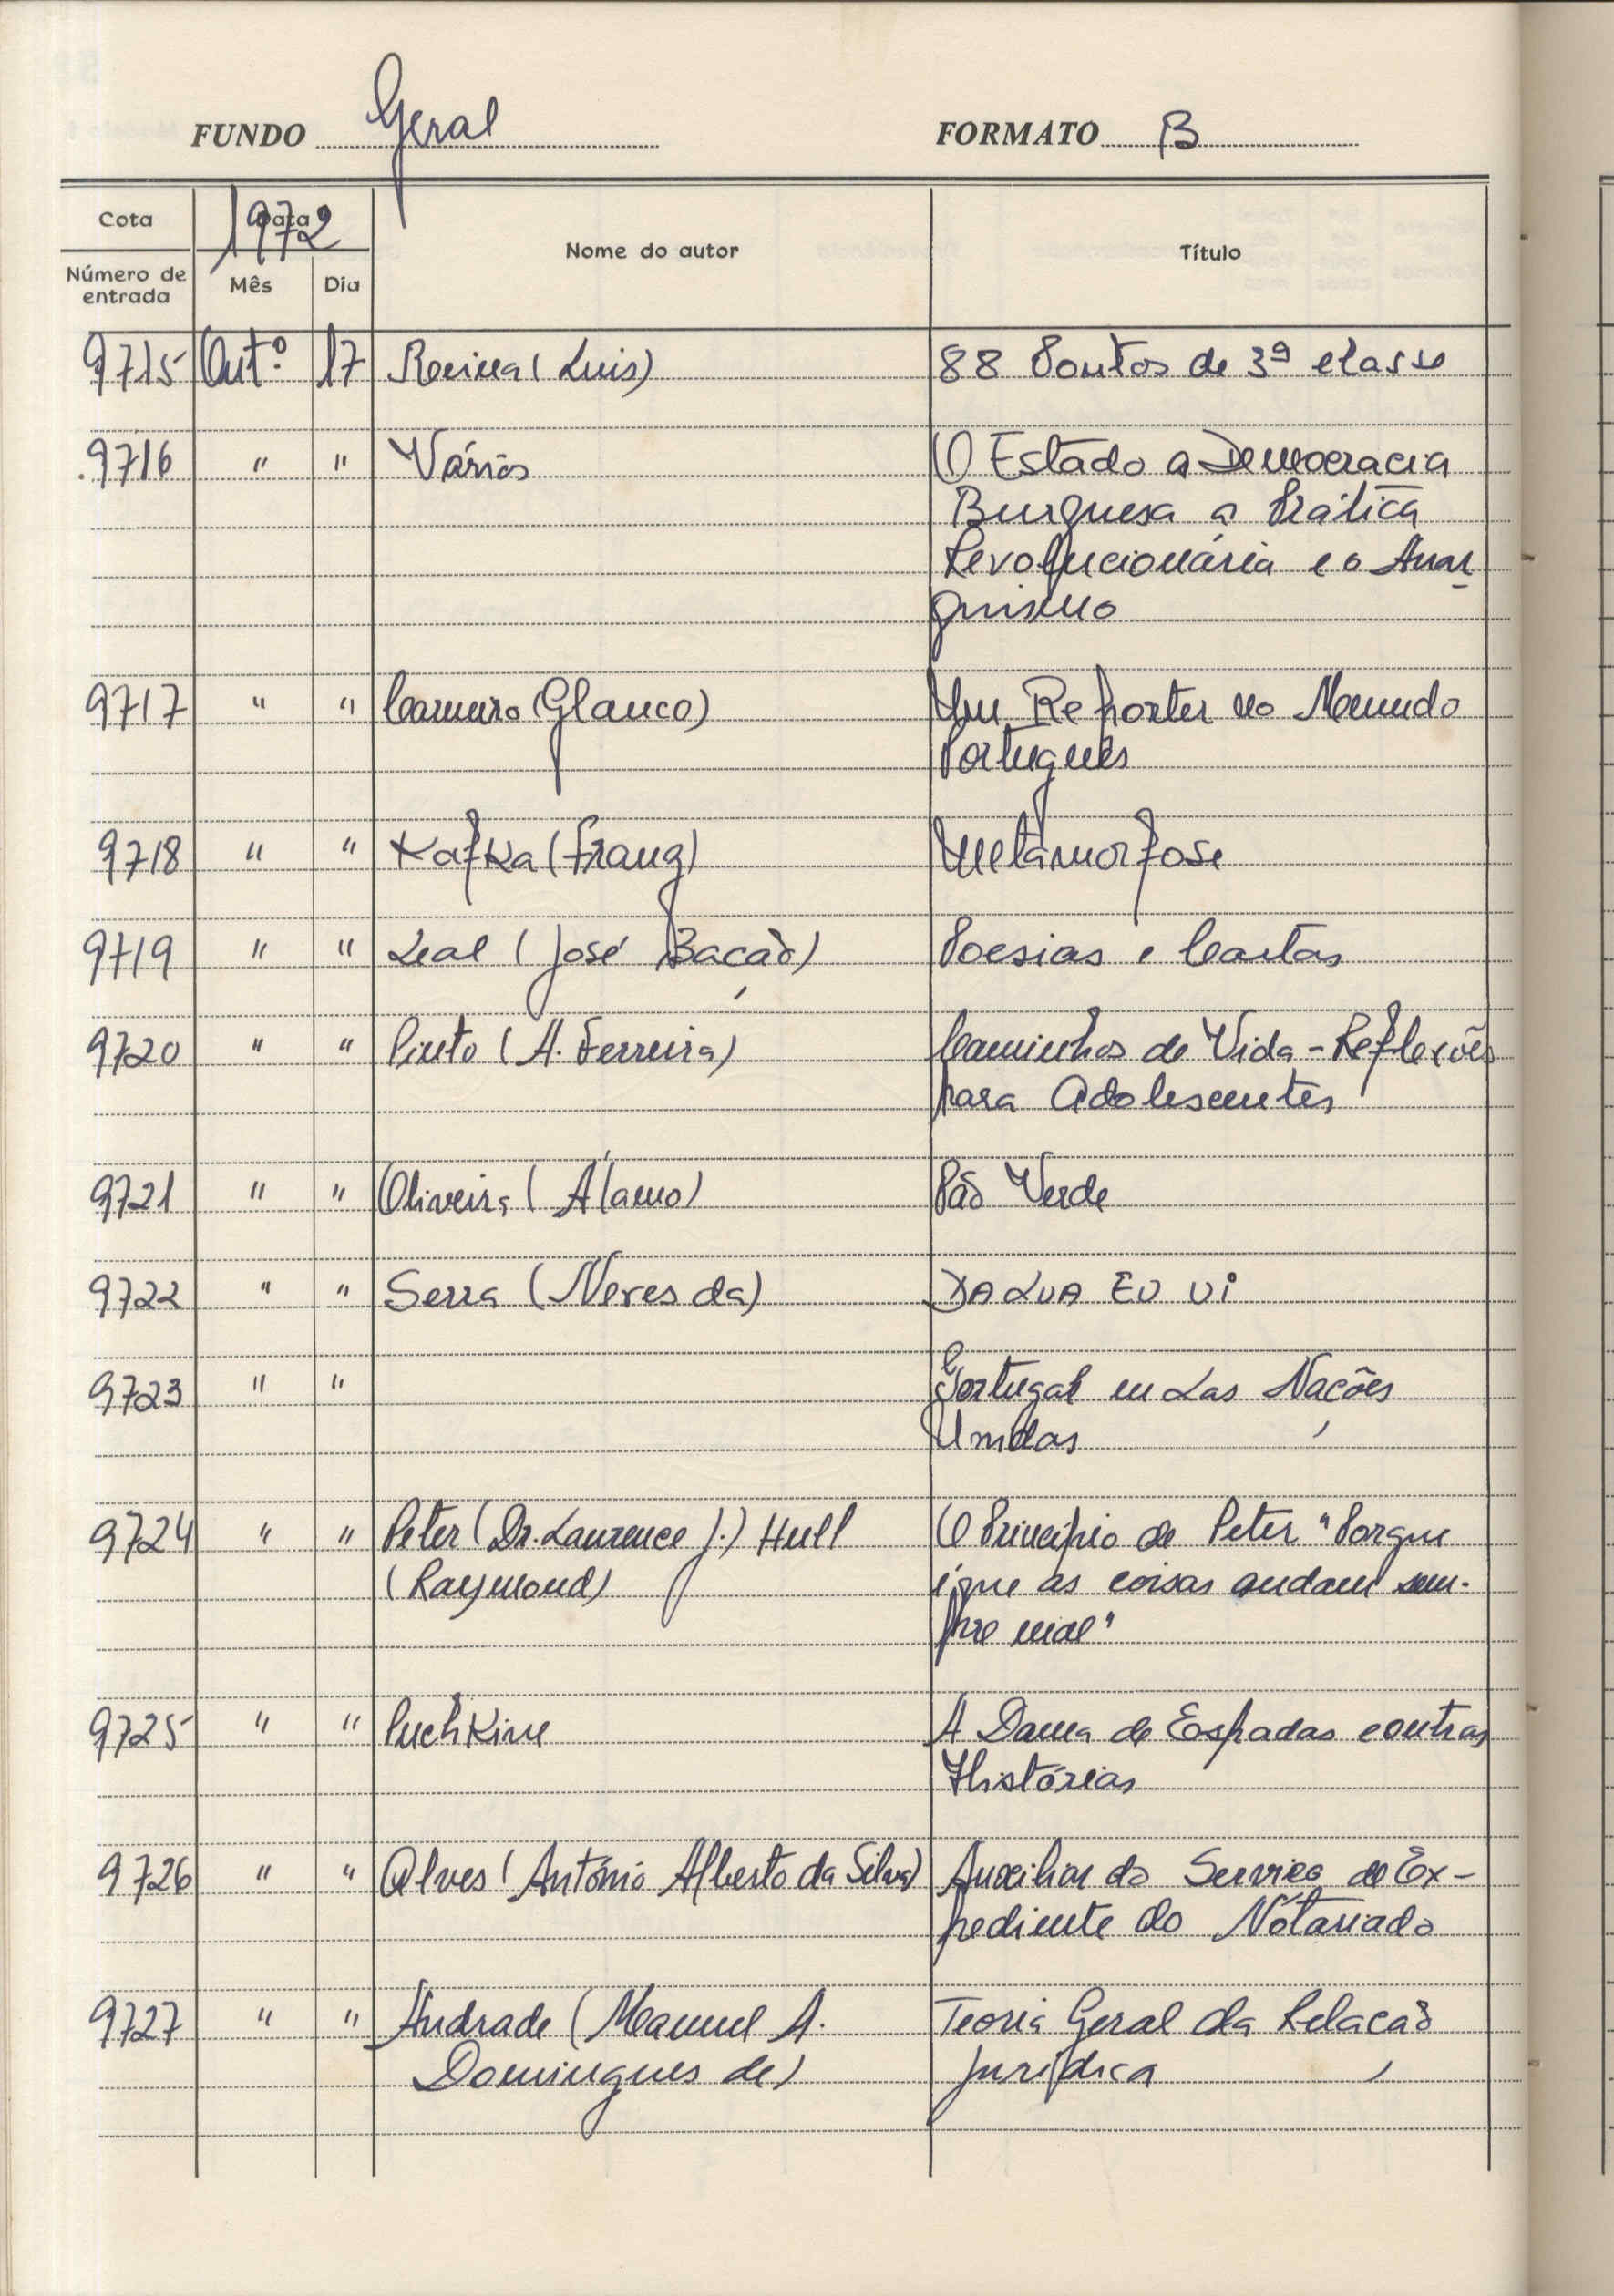 FUNDO Geral FORMATO B
Cota Data 1972 Nome do autor Título
Número de entrada Mês Dia
9715 Out.º 17 (Luis) 88 Pontos de 3ª classe
9716 " " Vários O Estado a Democracia
Burguesa a Prática
Revolucionária e o Anar
quismo
9717 " " Carneiro (Glauco) Um Reporter no Mundo
Português
9718 " " Kafka (Franz) Metamorfose
9719 " " Leal (José Bação) Poesias e Cartas
9720 " " Pinto (A. Ferreira) Caminhos de Vida - Reflexões
para Adolescentes
9721 " " Oliveira (Álamo) Pão Verde
9722 " " Serra (Neves da) DA LUA EU VI
9723 " " Portugal en Las Nações
Unidas
9724 " " Peter (Dr. Laurence J.) Hull O Princípio de Peter "Porque
(Raymond) é que as coisas andam sem-
pre mal"
9725 " " Puchkine A Dama de Espadas e outras
Histórias
9726 " " Alves (António Alberto da Silva) Auxiliar do Serviço de Ex-
pediente do Notariado
9727 " " Andrade (Manuel A. Teoria Geral da Relação
Domingues de) Jurídica